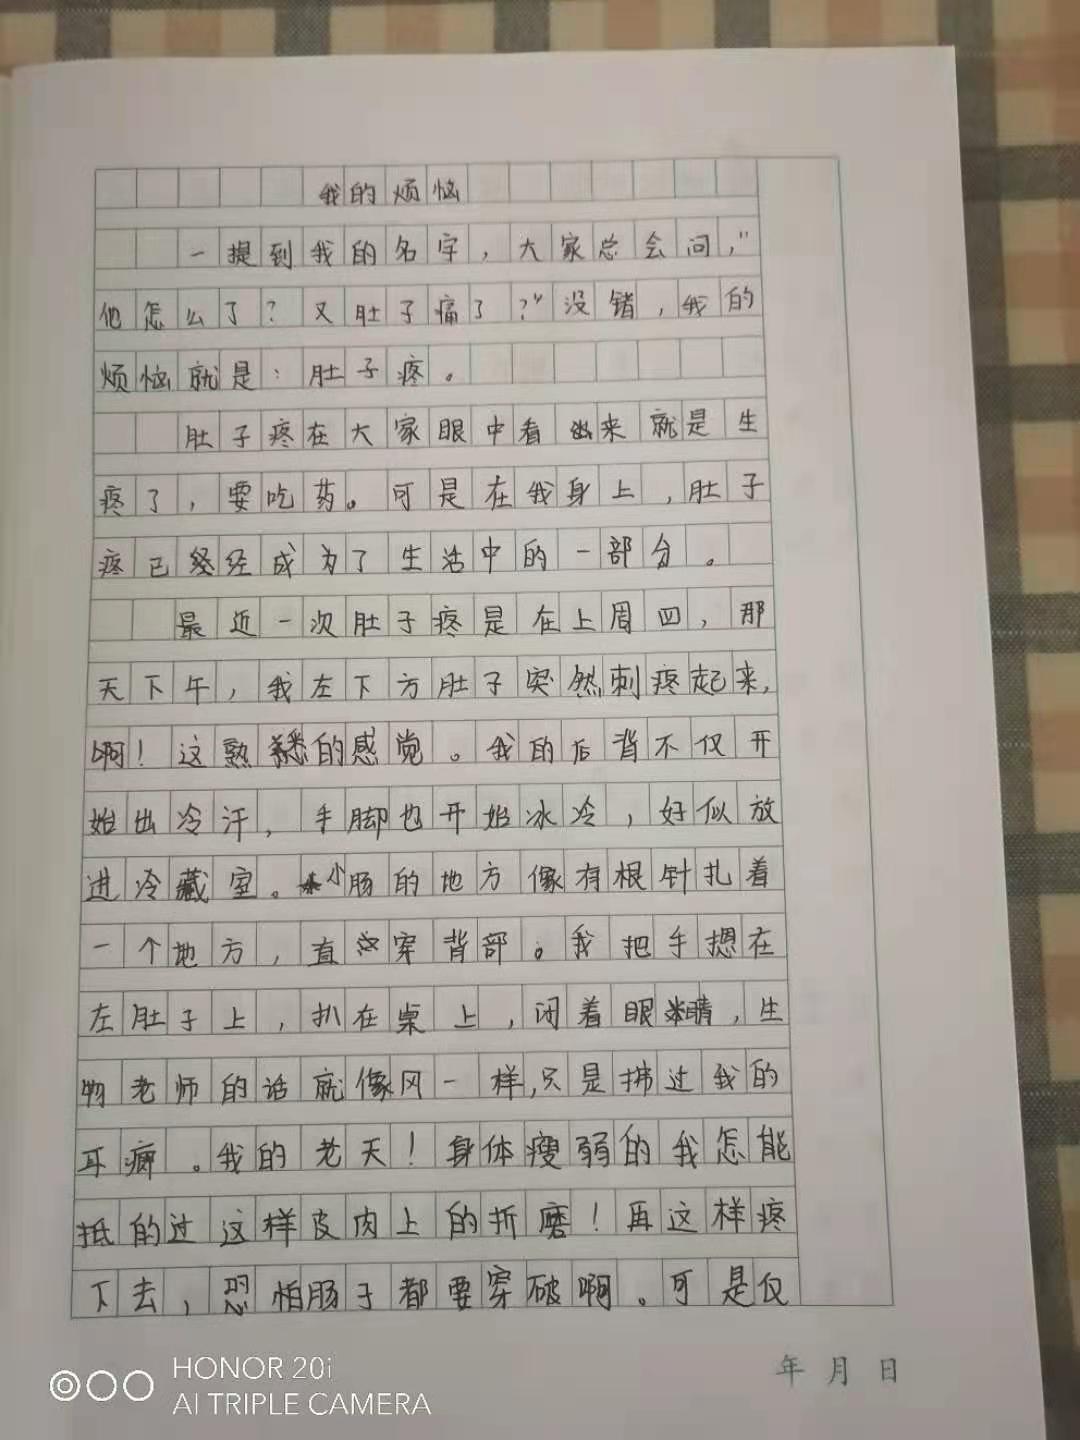 我的烦恼
一提到我的名字，大家总会问，“
他怎么了？又肚子痛了？”没错，我的
烦恼就是：肚子疼。
肚子疼在大家眼中看出来就是生
疼了，要吃药。可是在我身上，肚子
疼已经经成为了生活中的一部分。
最近一次肚子疼是在上周四，那
天下午，我左下方肚子突然刺疼起来，
啊！这熟悉的感觉。我的后背不仅开
始出冷汗，手脚也开始冰冷，好似放
进冷藏室。小肠的地方像有根针扎着
一个地方，直穿背部。我把手摁在
左肚子上，扒在桌上，闭着眼睛，生
物老师的话就像风一样，只是拂过我的
耳癖。我的老天！身体瘦弱的我怎能
抵的过这样皮肉上的折磨！再这样疼
下去，恐怕肠子都要穿破啊。可是仅
年 月 日
HONOR 20i
AI TRIPLE CAMERA